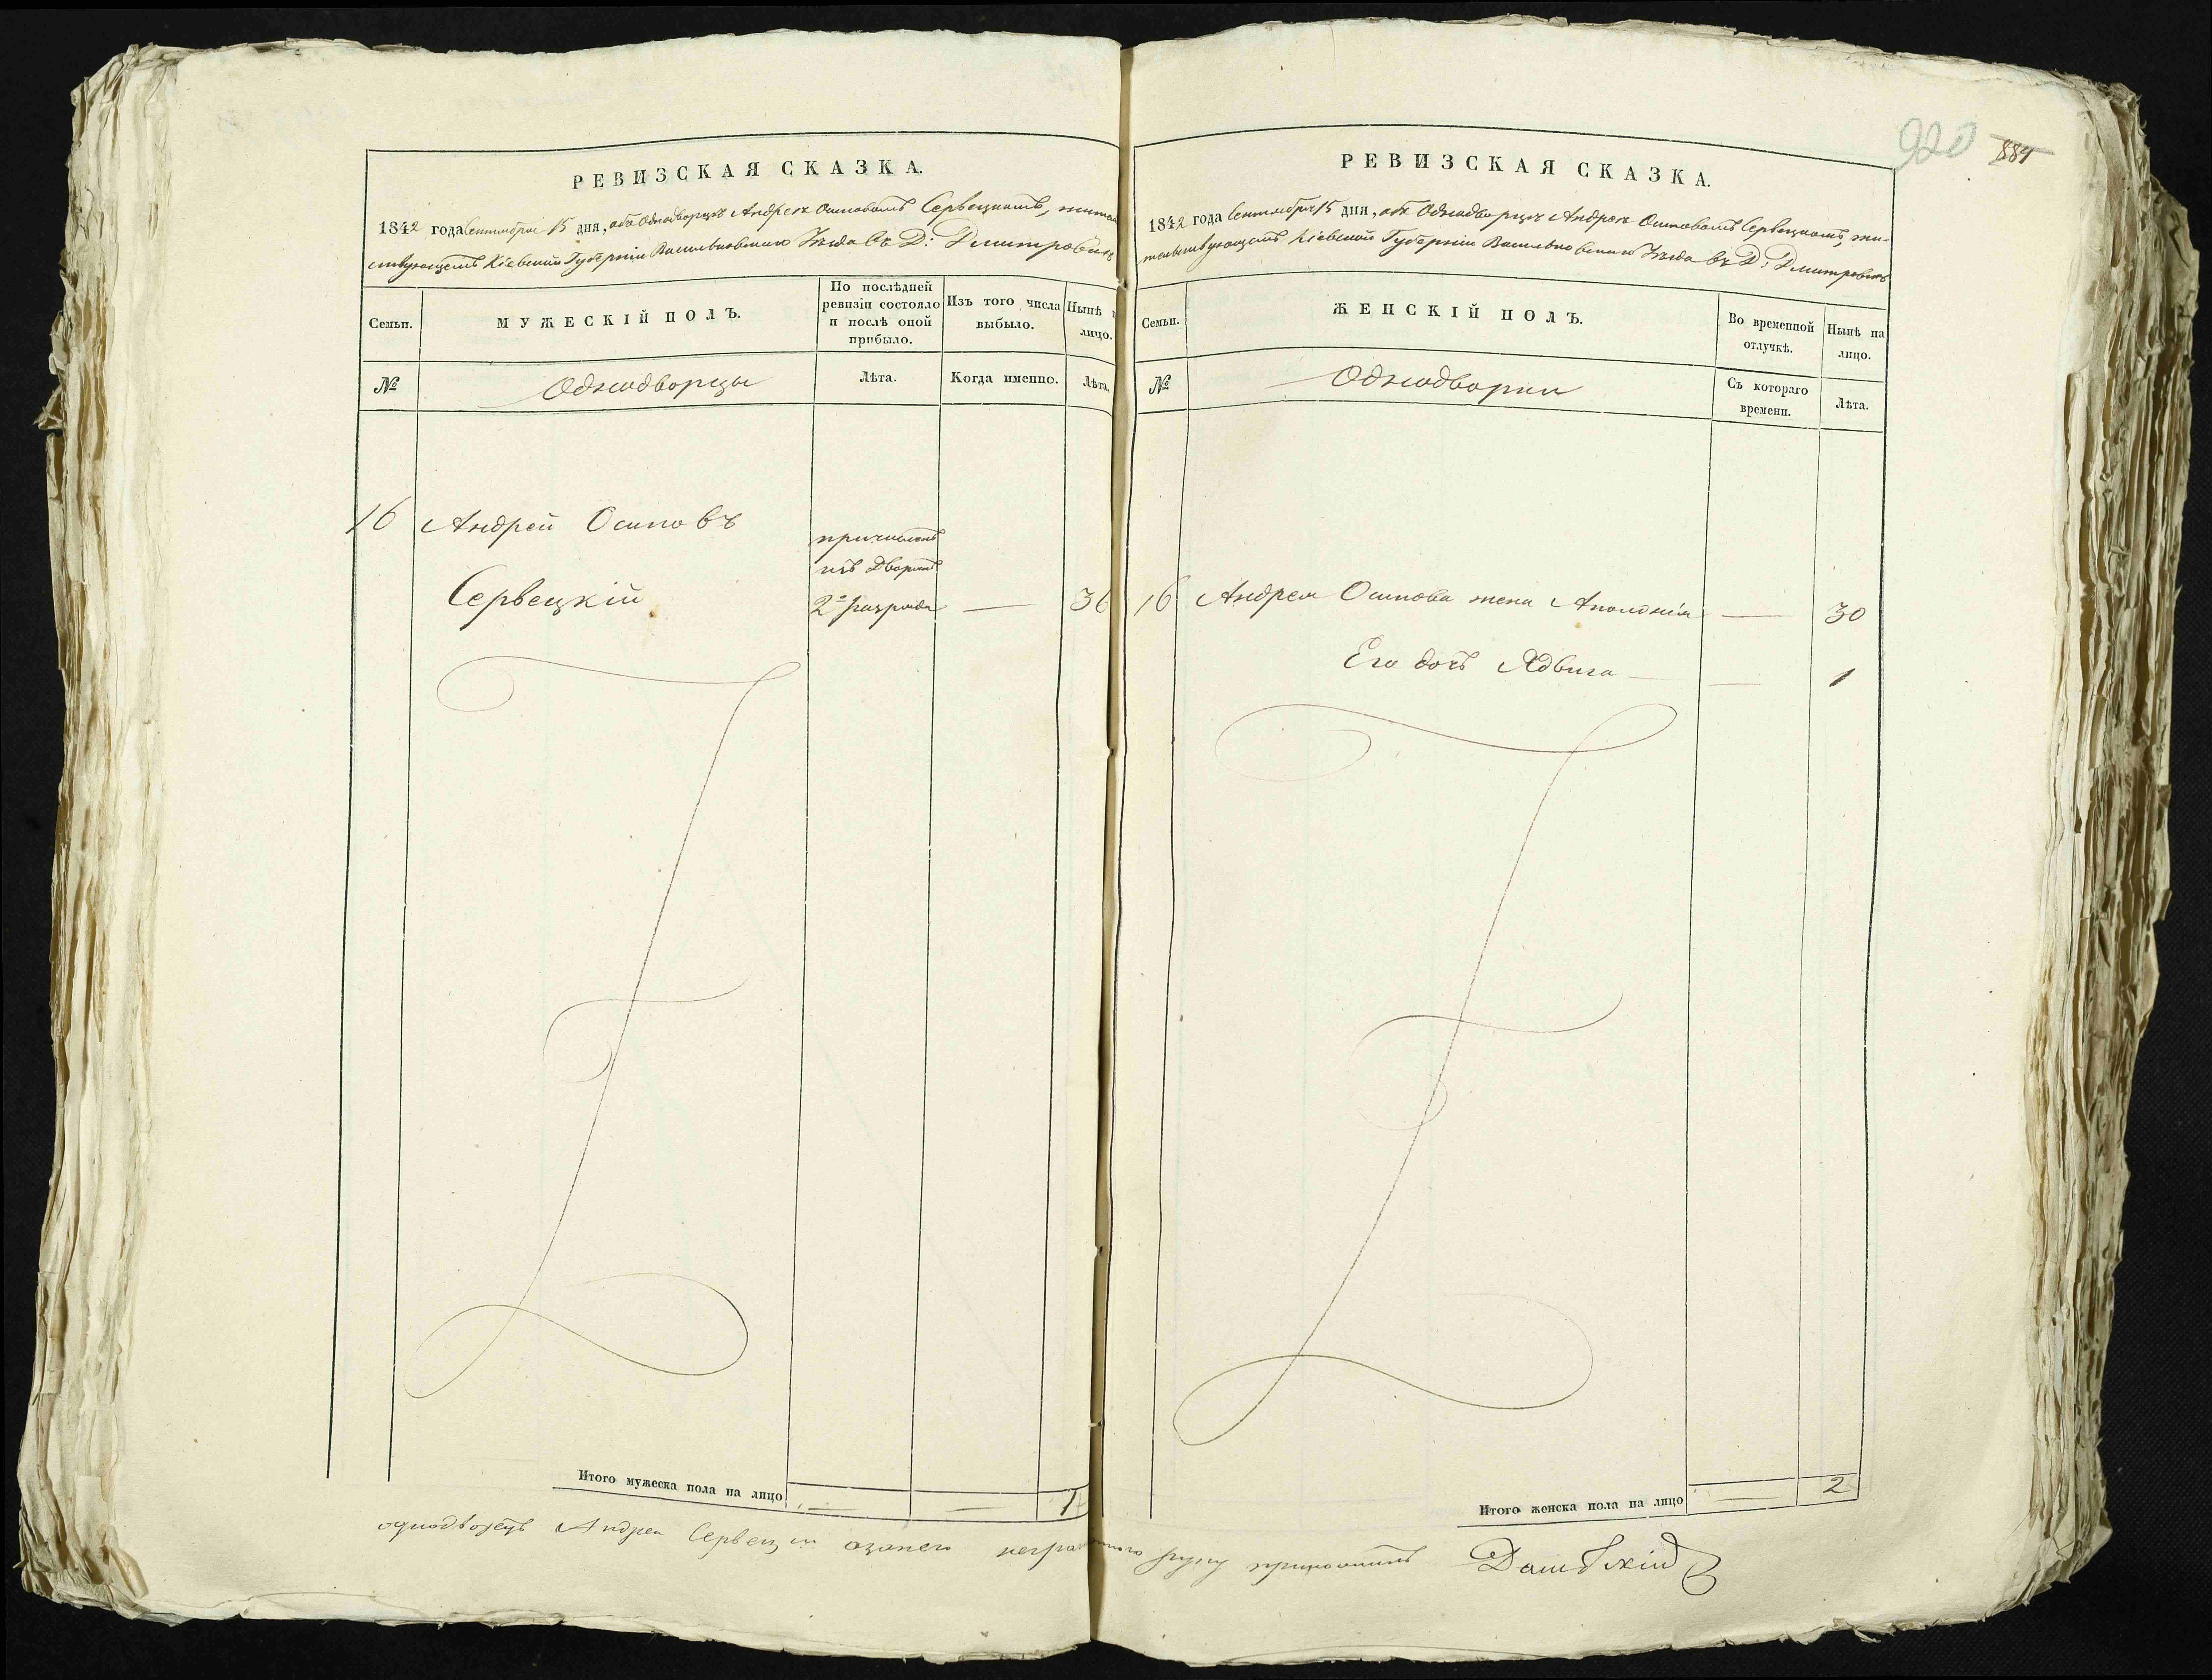 РЕВИЗСКАЯ СКАЗКА.
1842 года Сентября 15 дня, объ Однодворцѣ Андреѣ Осиповомъ Сервецкомъ, житель
ствующемъ Кіевской Губерніи Васильковскаго Уѣзда въ Д: Дмитровкѣ
Семьи.
МУЖЕСКІЙ ПОЛЪ.
По послѣдней
ревизіи состояло
и послѣ оной
прибыло.
Изъ того числа
выбыло.
Нынѣ
лицо.
№
Однодворцы
Лѣта.
Когда именно.
Лѣта.
16 Андрей Осиповъ
причисленъ
изъ Дворянъ
Сервецкій 2го разряда — 36
Итого мужеска пола на лицо — — 1
920 884
РЕВИЗСКАЯ СКАЗКА.
1842 года Сентября 15 дня, объ Однодворцѣ Андреѣ Осиповомъ Сервецкомъ, жи-
тельствующемъ Кіевской Губерніи Васильковскаго Уѣзда въ Д: Дмитровкѣ
Семьи.
ЖЕНСКІЙ ПОЛЪ.
Во временной
отлучкѣ.
Нынѣ на
лицо.
№
Однодворки
Съ котораго
времени.
Лѣта.
16 Андрея Осипова жена Аполонія — 30
Его дочь Ядвига — 1
Итого женска пола на лицо — 2
однодворецъ Андрей Сервецкій азанего неграмотнаго руку приложилъ Дашевскій